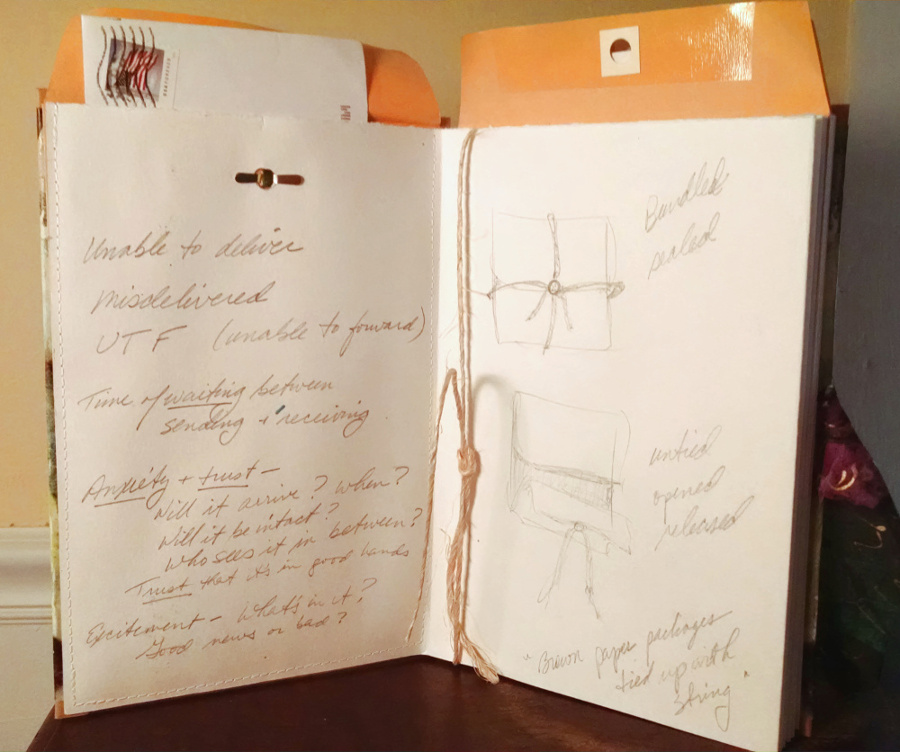 Unable to deliver
Misdelivered
UTF (unable to forward)
Time of waiting between
sending + receiving
Anxiety + trust -
Will it arrive? when?
Will it be intact?
Who sees it in between?
Trust that it's in good hands
Excitement - what's in it?
Good news or bad?
Bundled
sealed
untied
opened
released
"Brown paper packages
tied up with
string"